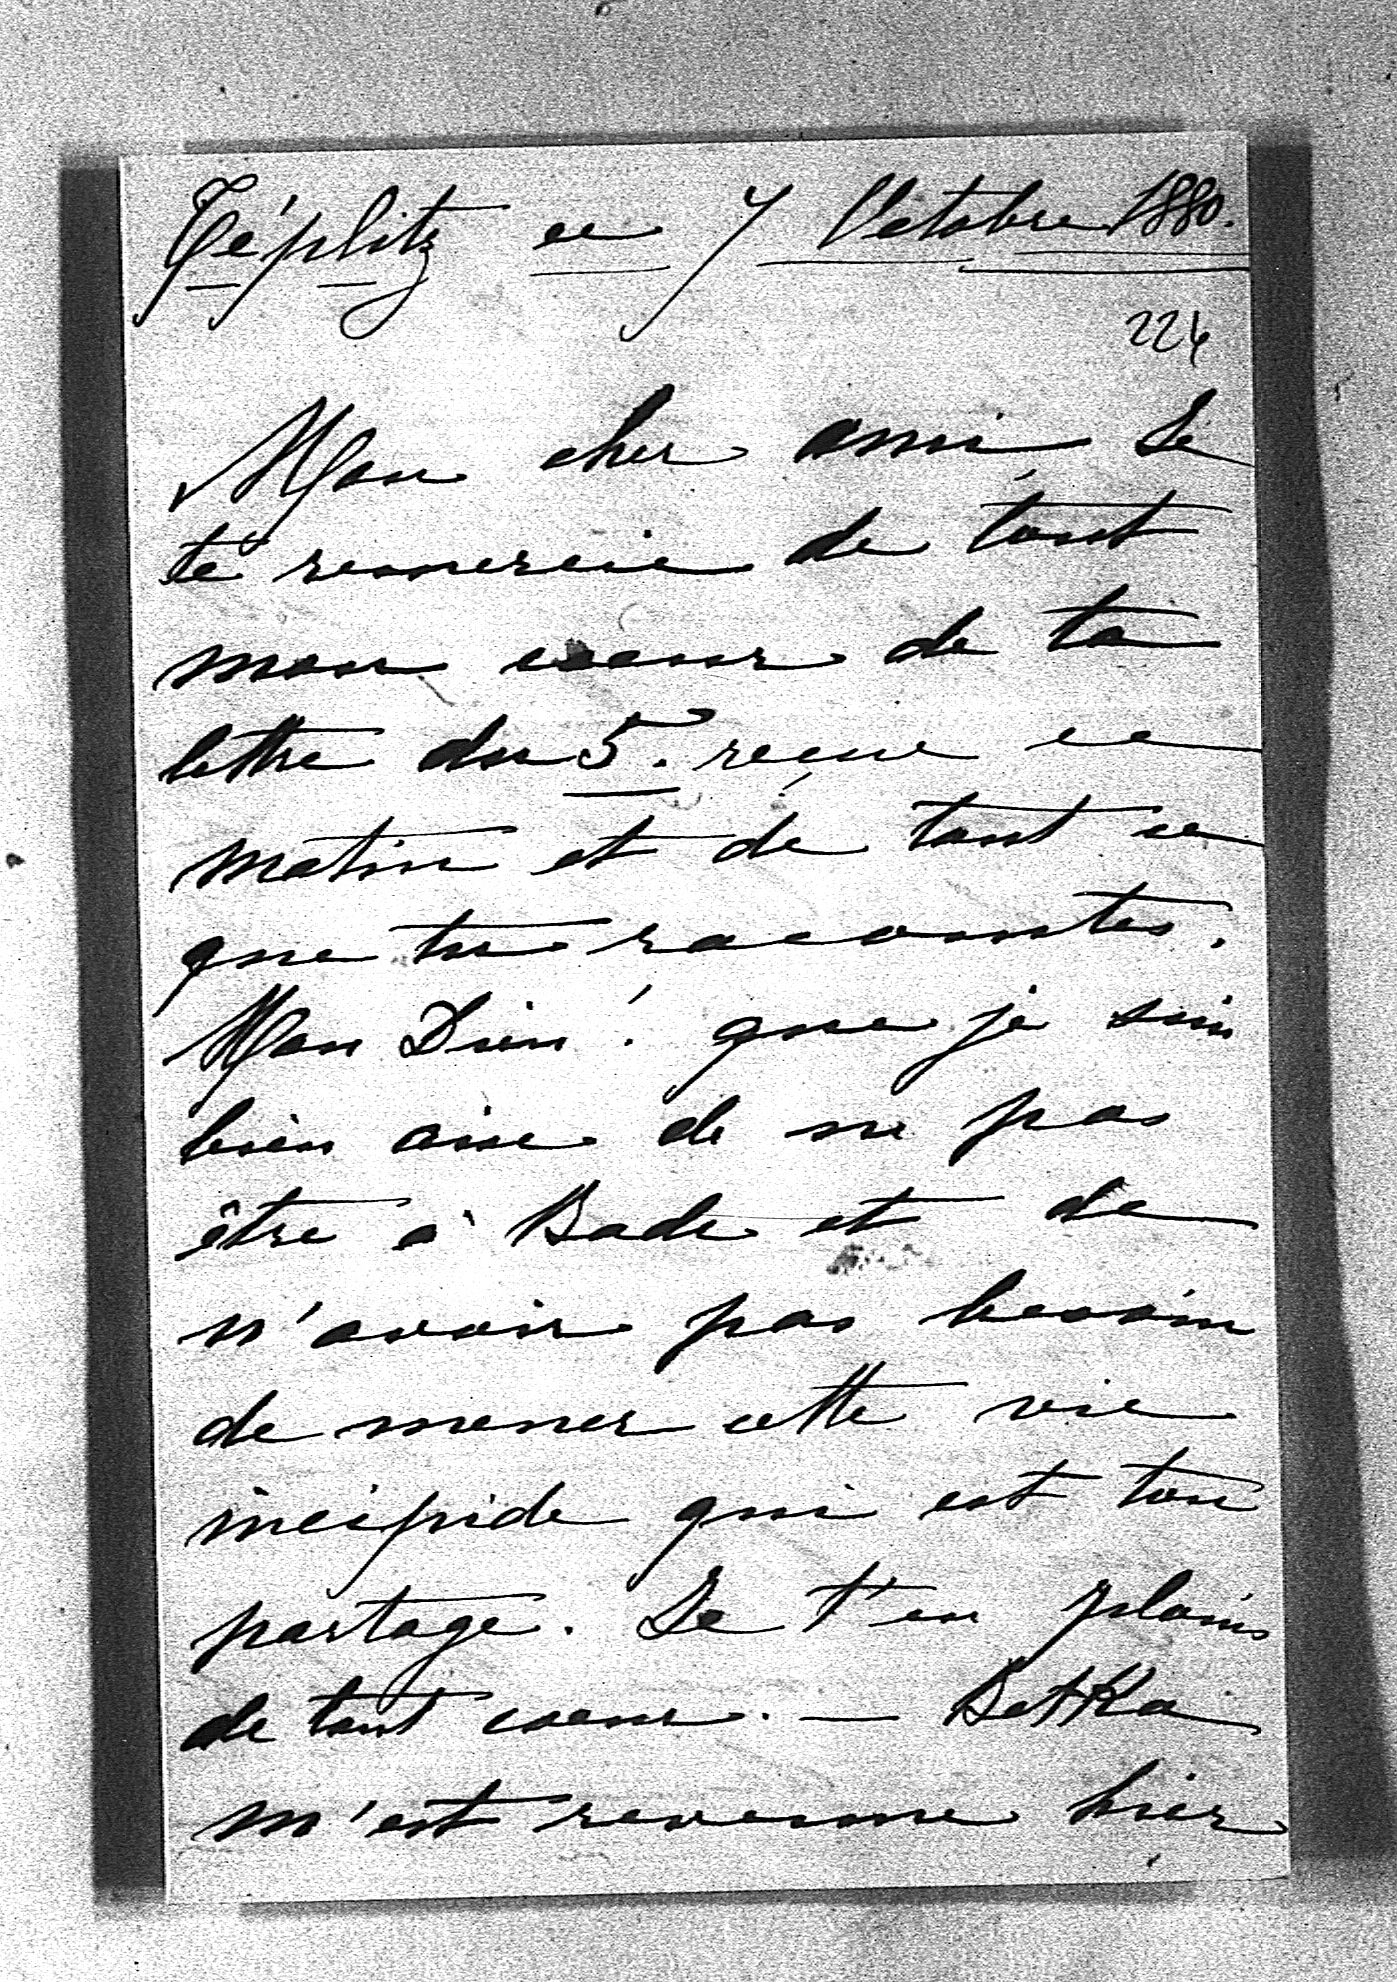 Téplitz ce 7 Octobre 1880.
224
Mon cher ami Je
te remercie de tout
mon coeur de ta
lettre du 5. reçue ce
matin et de tout ce
que tu racontes.
Mon Dieu! que je suis
bien aise de ne pas
être à Bade et de
n'avoir pas besoin
de mener cette vie
incipide qui est ton
partage. Je t'en plains
de tout coeur. — Betka
m'est revenue hier